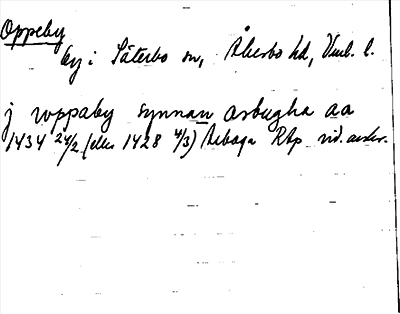 Oppeby
by i Säterbo sn, Åkerbo hd, Vml. l.
j woppaby synnan arbugha aa
1434 24/2 (eller 1428 4/3) Arboga Rbp vid. avskr.